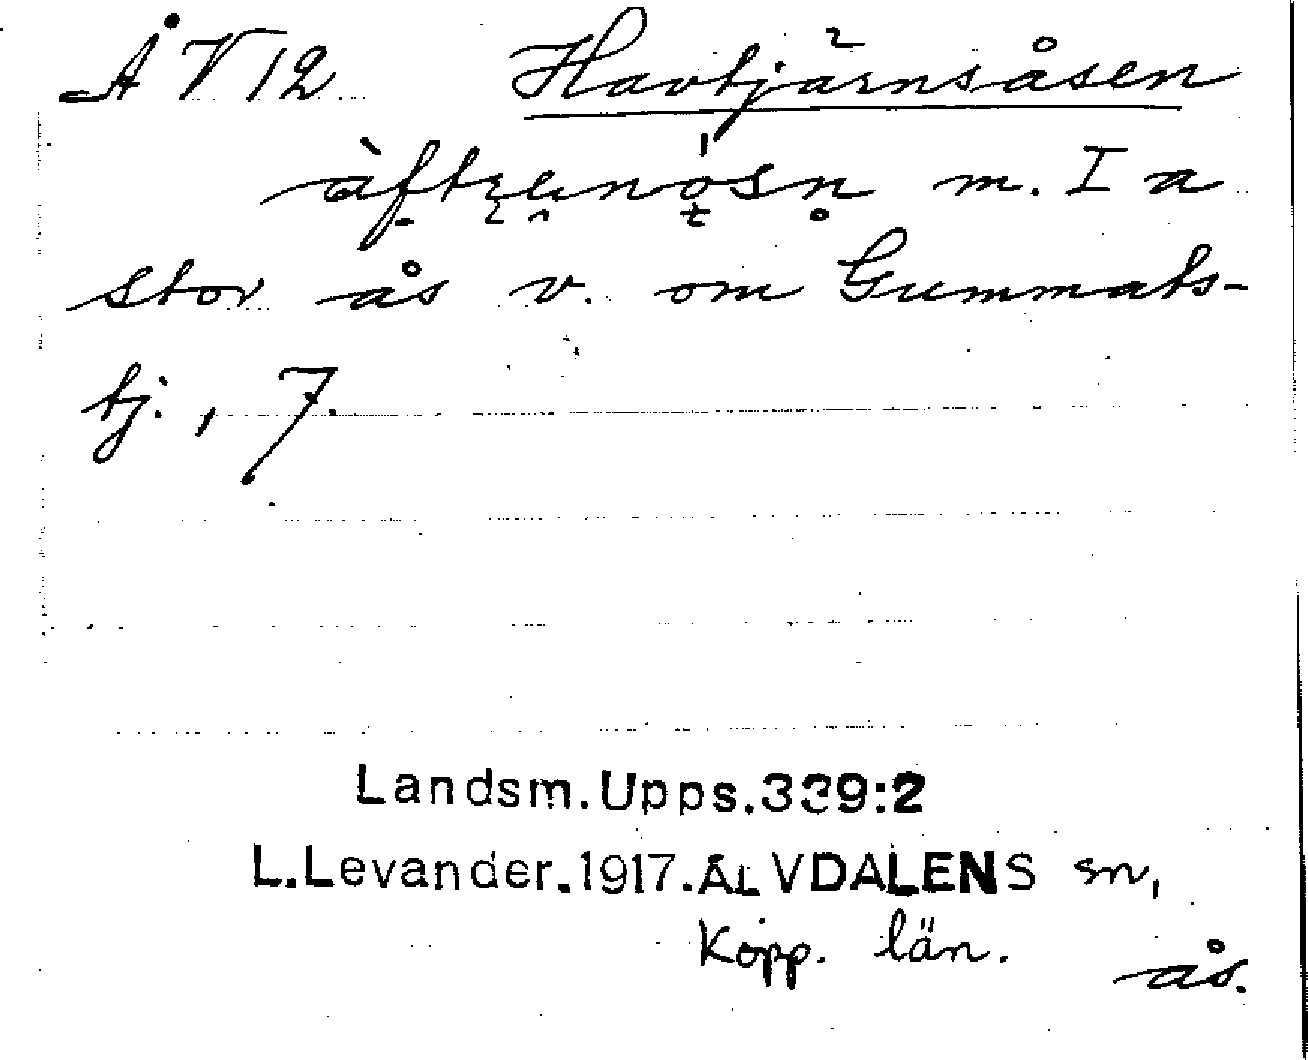 Å V 12 Havtjärnsåsen
m. I a
stor ås v. om Gummats-
tj., 7.
Landsm. Upps. 339:2
L. Levander. 1917. ÄLVDALENS sn,
Kopp. län.
ås.